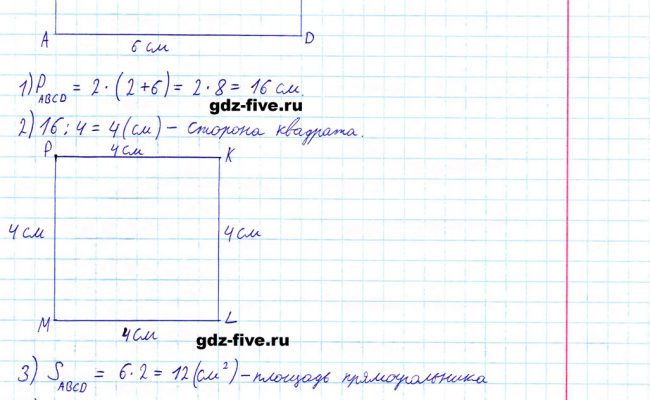 A D
6 см
1) P ABCD = 2·(2+6) = 2·8 = 16 см.
gdz-five.ru
2) 16:4 = 4(см) – сторона квадрата.
P 4см K
4см 4см
M L
4см
gdz-five.ru
3) S ABCD = 6·2 = 12(см²) – площадь прямоугольника